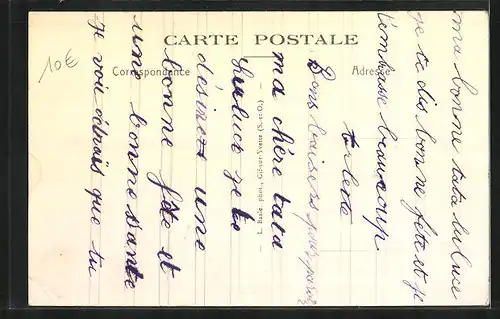 CARTE POSTALE
Correspondance
Adresse
10€
ma bonne tata Luluce
je te dis bonne fête et je
t'embrasse beaucoup
Bons baisers pour
ma chère tata
Luluce je te
désire une
bonne fête et
une bonne santé
je vois que tu
L. Basle, phot., Gif-sur-Yvette (S.-et-O.)